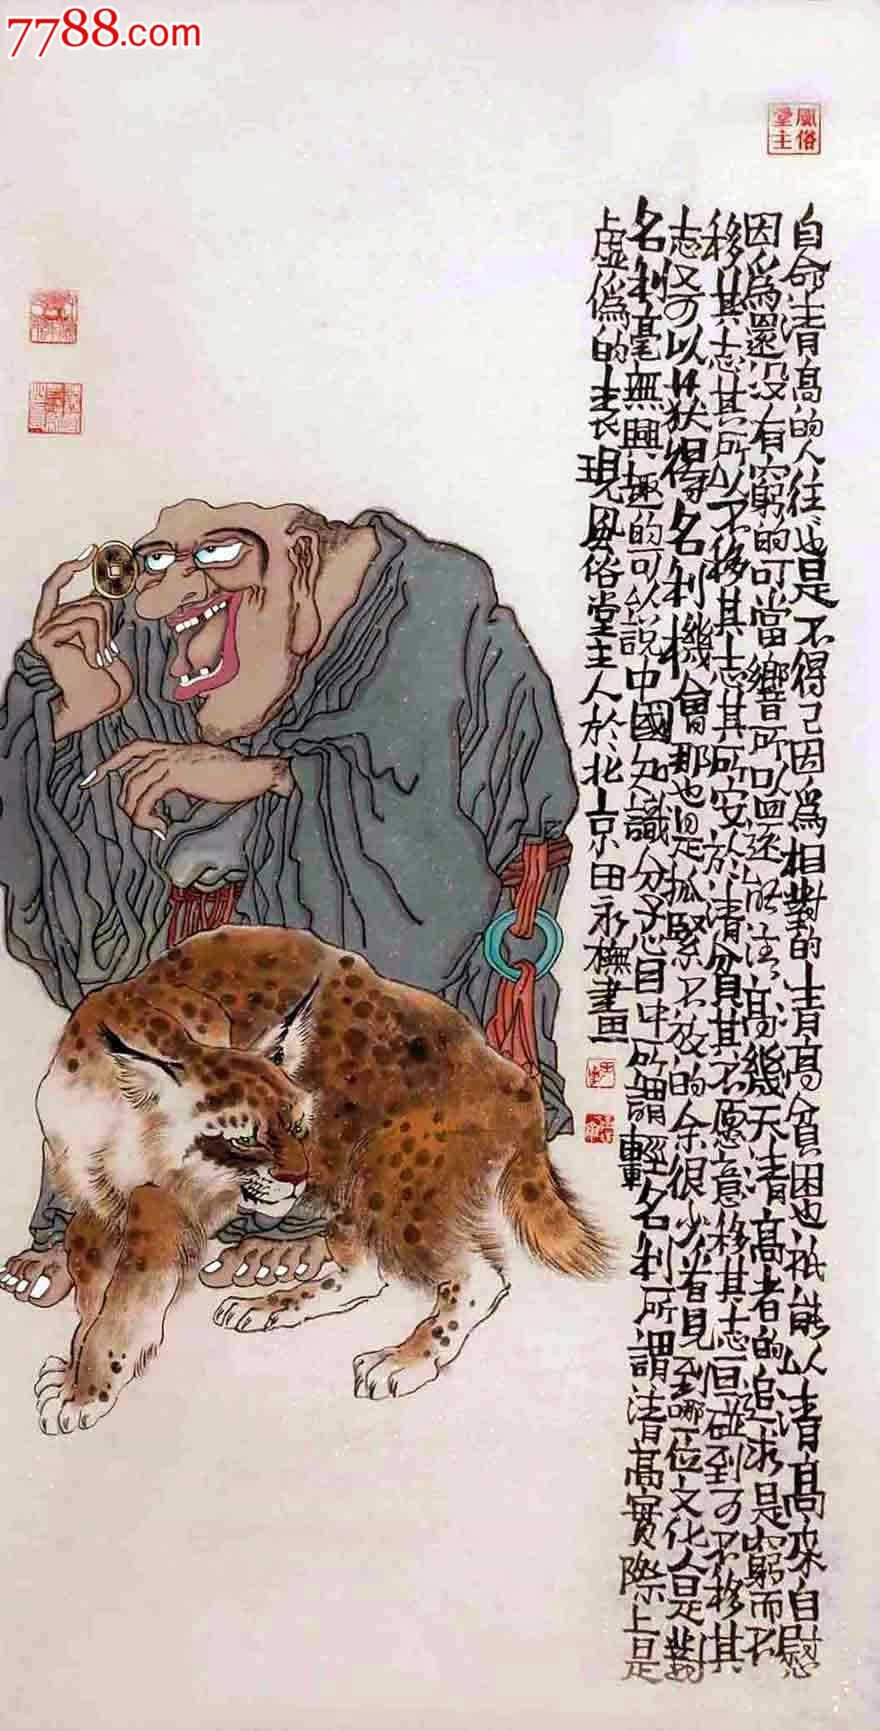 7788.com
風俗
堂主
自命清高的人往々是不得已因為相對的清高貧困也祇能以清高來自慰
因為還没有窮的叮當響所以還能清高幾天清高者的追求是窮而不
移其志其所以不移其志其所安於清貧其不愿意移其志一旦碰到可不移其
志又可以獲得名利機會那也是抓緊不放的余很少看見到哪一位文化人是對
名利毫無興趣的可以說中國知識分子心目中所謂輕名利所謂清高實際上是
虛偽的表現風俗堂主人於北京田永橅畫